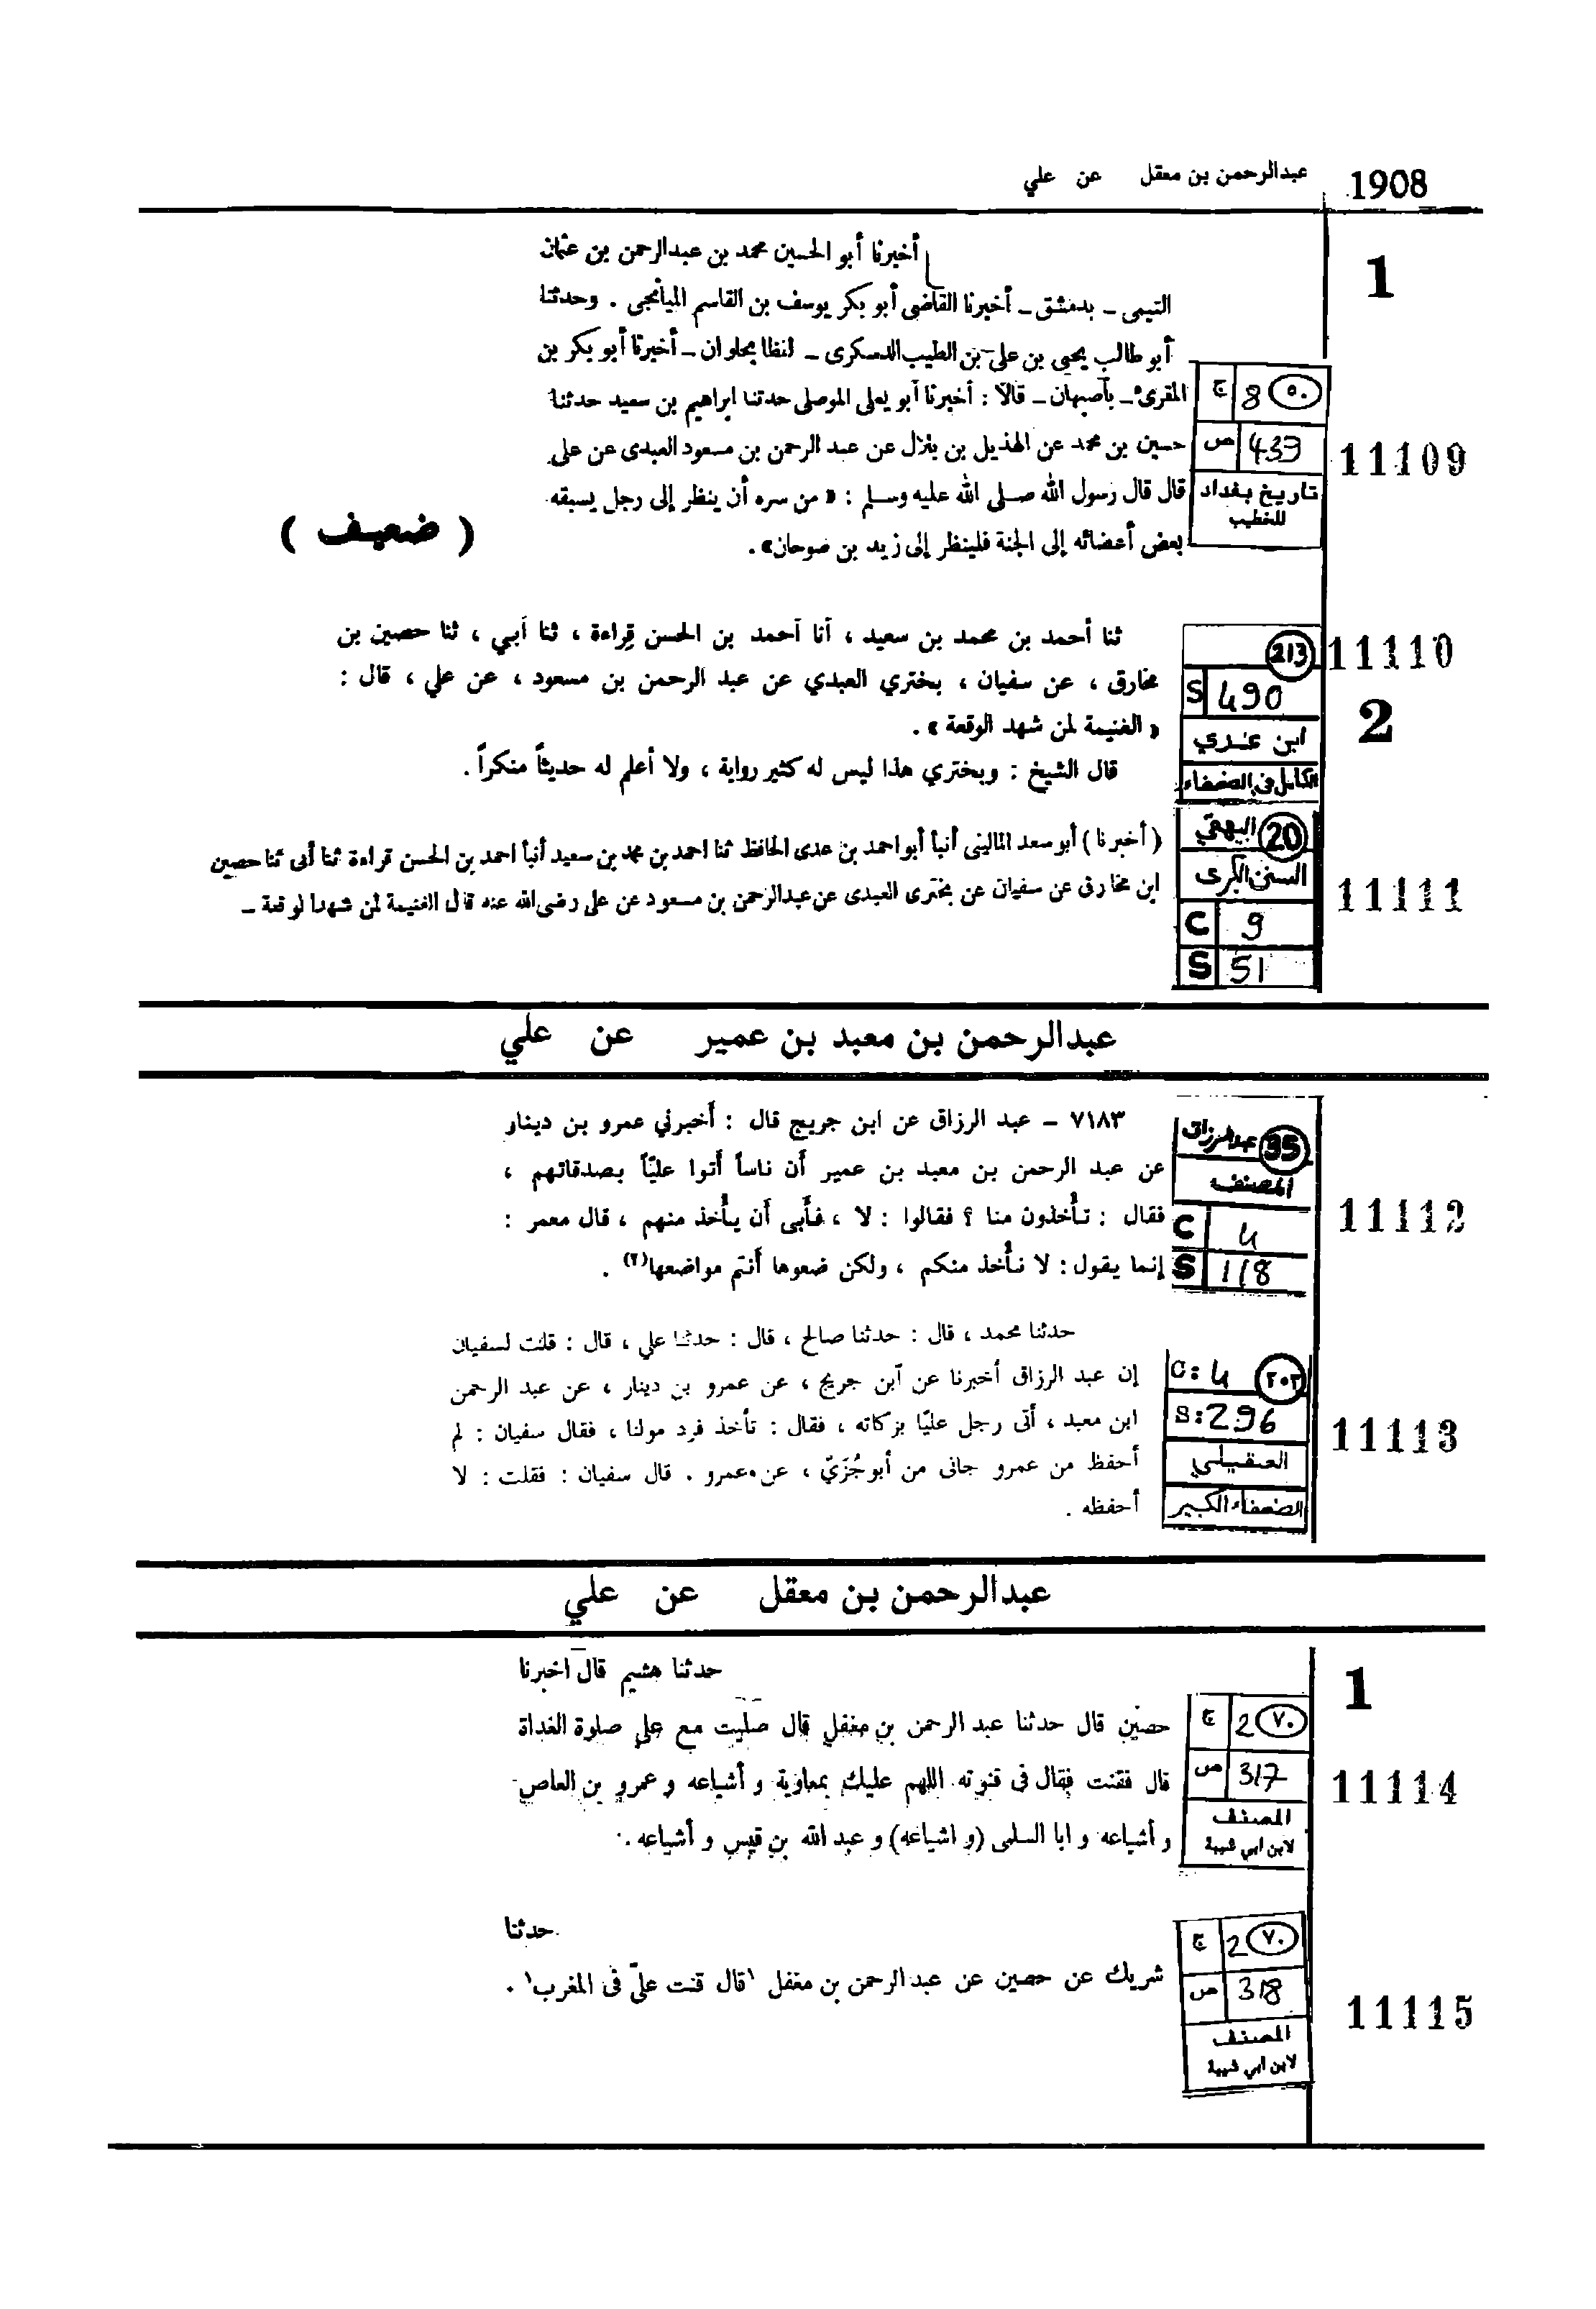 1908 عبدالرحمن بن معقل عن علي
1
أخبرنا أبو الحسين محمد بن عبدالرحمن بن عثمان
التيمى ـ بدمشق ـ أخبرنا القاضى أبو بكر يوسف بن القاسم الميانجى . وحدثنا
أبو طالب يحيى بن على بن الطيب الدسكرى ـ لفظا بحلوان ـ أخبرنا أبو بكر بن
المقرئ ـ بأصبهان ـ قالا : أخبرنا أبو يعلى الموصلى حدثنا ابراهيم بن سعيد حدثنا
حسين بن محمد عن الهذيل بن بلال عن عبد الرحمن بن مسعود العبدى عن على
قال قال رسول الله صلى الله عليه وسلم : « من سره أن ينظر إلى رجل يسبقه
بعض أعضائه إلى الجنة فلينظر إلى زيد بن صوحان» .
( ضعيف )
ج 8 ٥٠
ص 439
تاريخ بغداد
للخطيب
11109
ثنا أحمد بن محمد بن سعيد ، أنا أحمد بن الحسن قراءة ، ثنا أبي ، ثنا حصين بن
مخارق ، عن سفيان ، بختري العبدي عن عبد الرحمن بن مسعود ، عن علي ، قال :
« الغنيمة لمن شهد الوقعة » .
قال الشيخ : وبختري هذا ليس له كثير رواية ، ولا أعلم له حديثاً منكراً .
213
S 490
ابن عدي
الكامل في الضعفاء
11110
2
( أخبرنا ) أبو سعد المالينى أنبأ أبو احمد بن عدى الحافظ ثنا احمد بن محمد بن سعيد أنبأ احمد بن الحسن قراءة ثنا أبى ثنا حصين
ابن مخارق عن سفيان عن بخترى العبدى عن عبدالرحمن بن مسعود عن على رضى الله عنه قال الغنيمة لمن شهد الوقعة ـ
20 البيهقي
السنن الكبرى
C 9
S 51
11111
عبدالرحمن بن معبد بن عمير عن علي
٧١٨٣ ـ عبد الرزاق عن ابن جريج قال : أخبرني عمرو بن دينار
عن عبد الرحمن بن معبد بن عمير أن ناساً أتوا عليّاً بصدقاتهم ،
فقال : تأخذون منا ؟ فقالوا : لا ، فأبى أن يأخذ منهم ، قال معمر :
إنما يقول : لا نأخذ منكم ، ولكن ضعوها أنتم مواضعها(٢) .
35 عبدالرزاق
المصنف
C 4
S 118
11112
حدثنا محمد ، قال : حدثنا صالح ، قال : حدثنا علي ، قال : قلت لسفيان
إن عبد الرزاق أخبرنا عن ابن جريج ، عن عمرو بن دينار ، عن عبد الرحمن
ابن معبد ، أتى رجل عليّا بزكاته ، فقال : تأخذ فرد مولنا ، فقال سفيان : لم
أحفظ من عمرو جانى من أبو جُزَيّ ، عن عمرو . قال سفيان : فقلت : لا
أحفظه .
C: 4 ٢٠٢
S: 296
العقيلي
الضعفاء الكبير
11113
عبدالرحمن بن معقل عن علي
1
حدثنا هشيم قال اخبرنا
حصين قال حدثنا عبد الرحمن بن مغفل قال صليت مع على صلوة الغداة
قال فقنت فقال فى قنوته اللهم عليك بمعاوية و أشياعه و عمرو بن العاص
و أشياعه و ابا السلمى (و اشياعه) و عبد الله بن قيس و أشياعه .
ج 2 ٧٠
ص 317
المصنف
لابن ابي شيبة
11114
حدثنا
شريك عن حصين عن عبد الرحمن بن مغفل 'قال قنت علىّ فى المغرب' .
ج 2 ٧٠
ص 318
المصنف
لابن ابي شيبة
11115